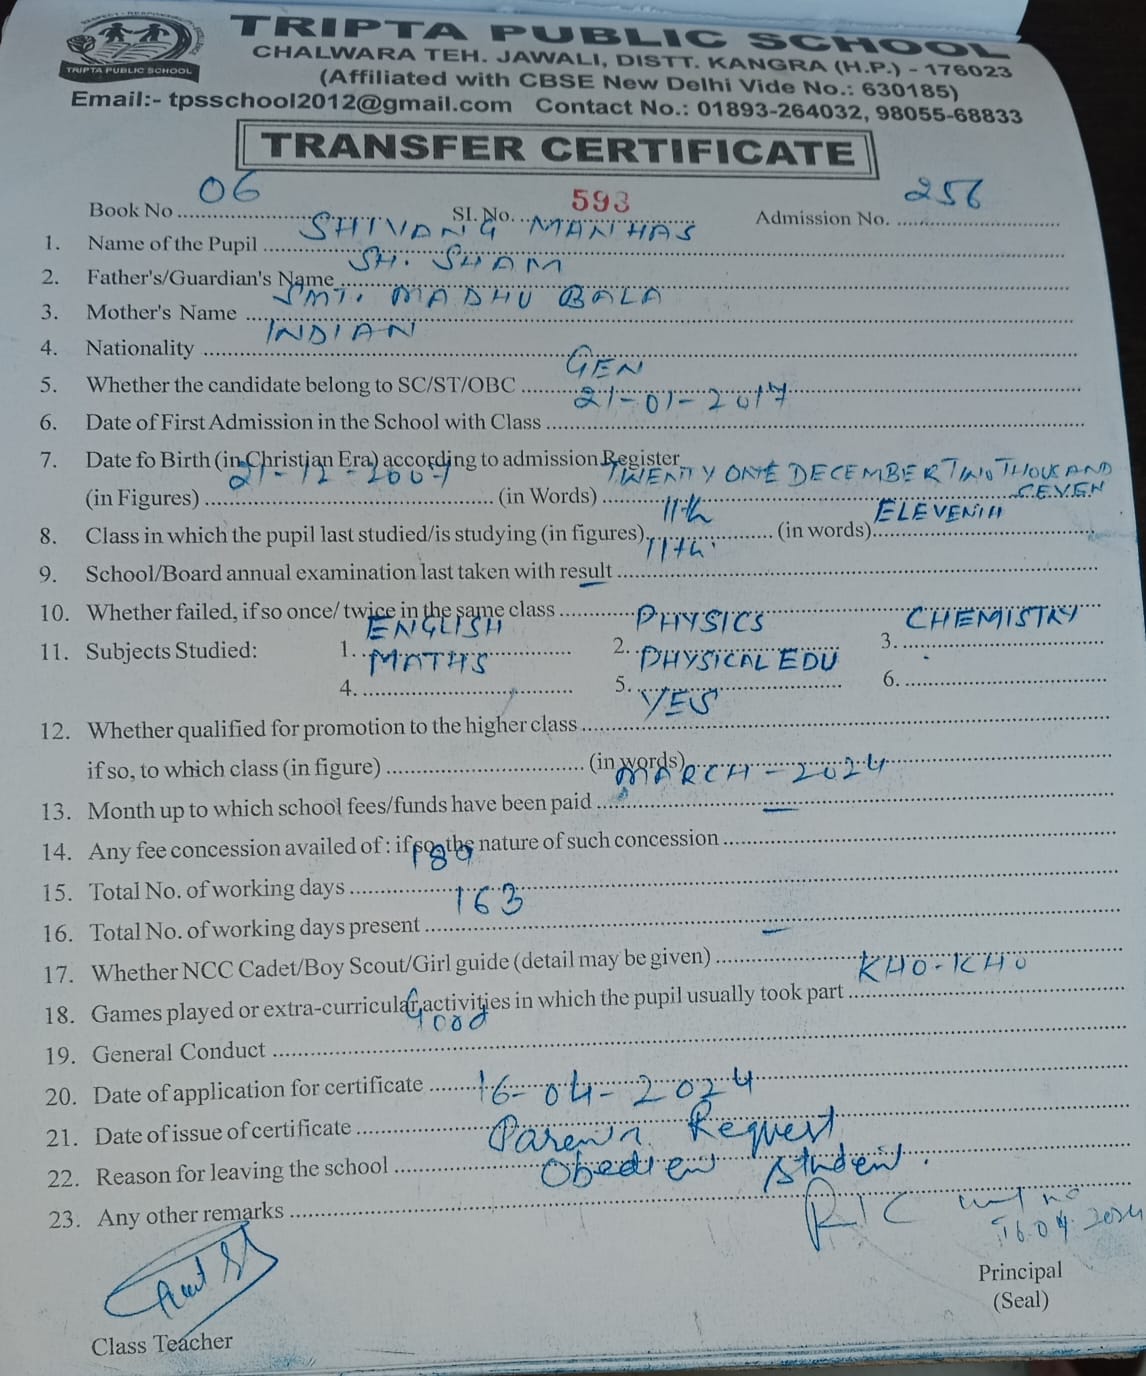 TRIPTA PUBLIC SCHOOL
TRIPTA PUBLIC SCHOOL
CHALWARA TEH. JAWALI, DISTT. KANGRA (H.P.) - 176023
(Affiliated with CBSE New Delhi Vide No.: 630185)
Email:- tpsschool2012@gmail.com Contact No.: 01893-264032, 98055-68833
TRANSFER CERTIFICATE
Book No 06 Sl. No. 593 Admission No. 256
1. Name of the Pupil SHIVANG MANHAS
2. Father's/Guardian's Name SH. SHAM
3. Mother's Name SMT. MADHU BALA
4. Nationality INDIAN
5. Whether the candidate belong to SC/ST/OBC GEN
6. Date of First Admission in the School with Class 21-01-2017
7. Date fo Birth (in Christian Era) according to admission Register
(in Figures) 21-12-2007 (in Words) TWENTY ONE DECEMBER TWO THOUSAND SEVEN
8. Class in which the pupil last studied/is studying (in figures) 11th (in words) ELEVENTH
9. School/Board annual examination last taken with result 11th
10. Whether failed, if so once/ twice in the same class —
11. Subjects Studied: 1. ENGLISH 2. PHYSICS 3. CHEMISTRY
4. MATHS 5. PHYSICAL EDU 6.
12. Whether qualified for promotion to the higher class YES
if so, to which class (in figure) (in words)
13. Month up to which school fees/funds have been paid MARCH - 2024
14. Any fee concession availed of : if so, the nature of such concession —
15. Total No. of working days
16. Total No. of working days present 163
17. Whether NCC Cadet/Boy Scout/Girl guide (detail may be given) —
18. Games played or extra-curricular activities in which the pupil usually took part KHO-KHO
19. General Conduct Good
20. Date of application for certificate
21. Date of issue of certificate 16-04-2024
22. Reason for leaving the school Request
23. Any other remarks Obedient Student.
16.04.2024
Principal
(Seal)
Class Teacher